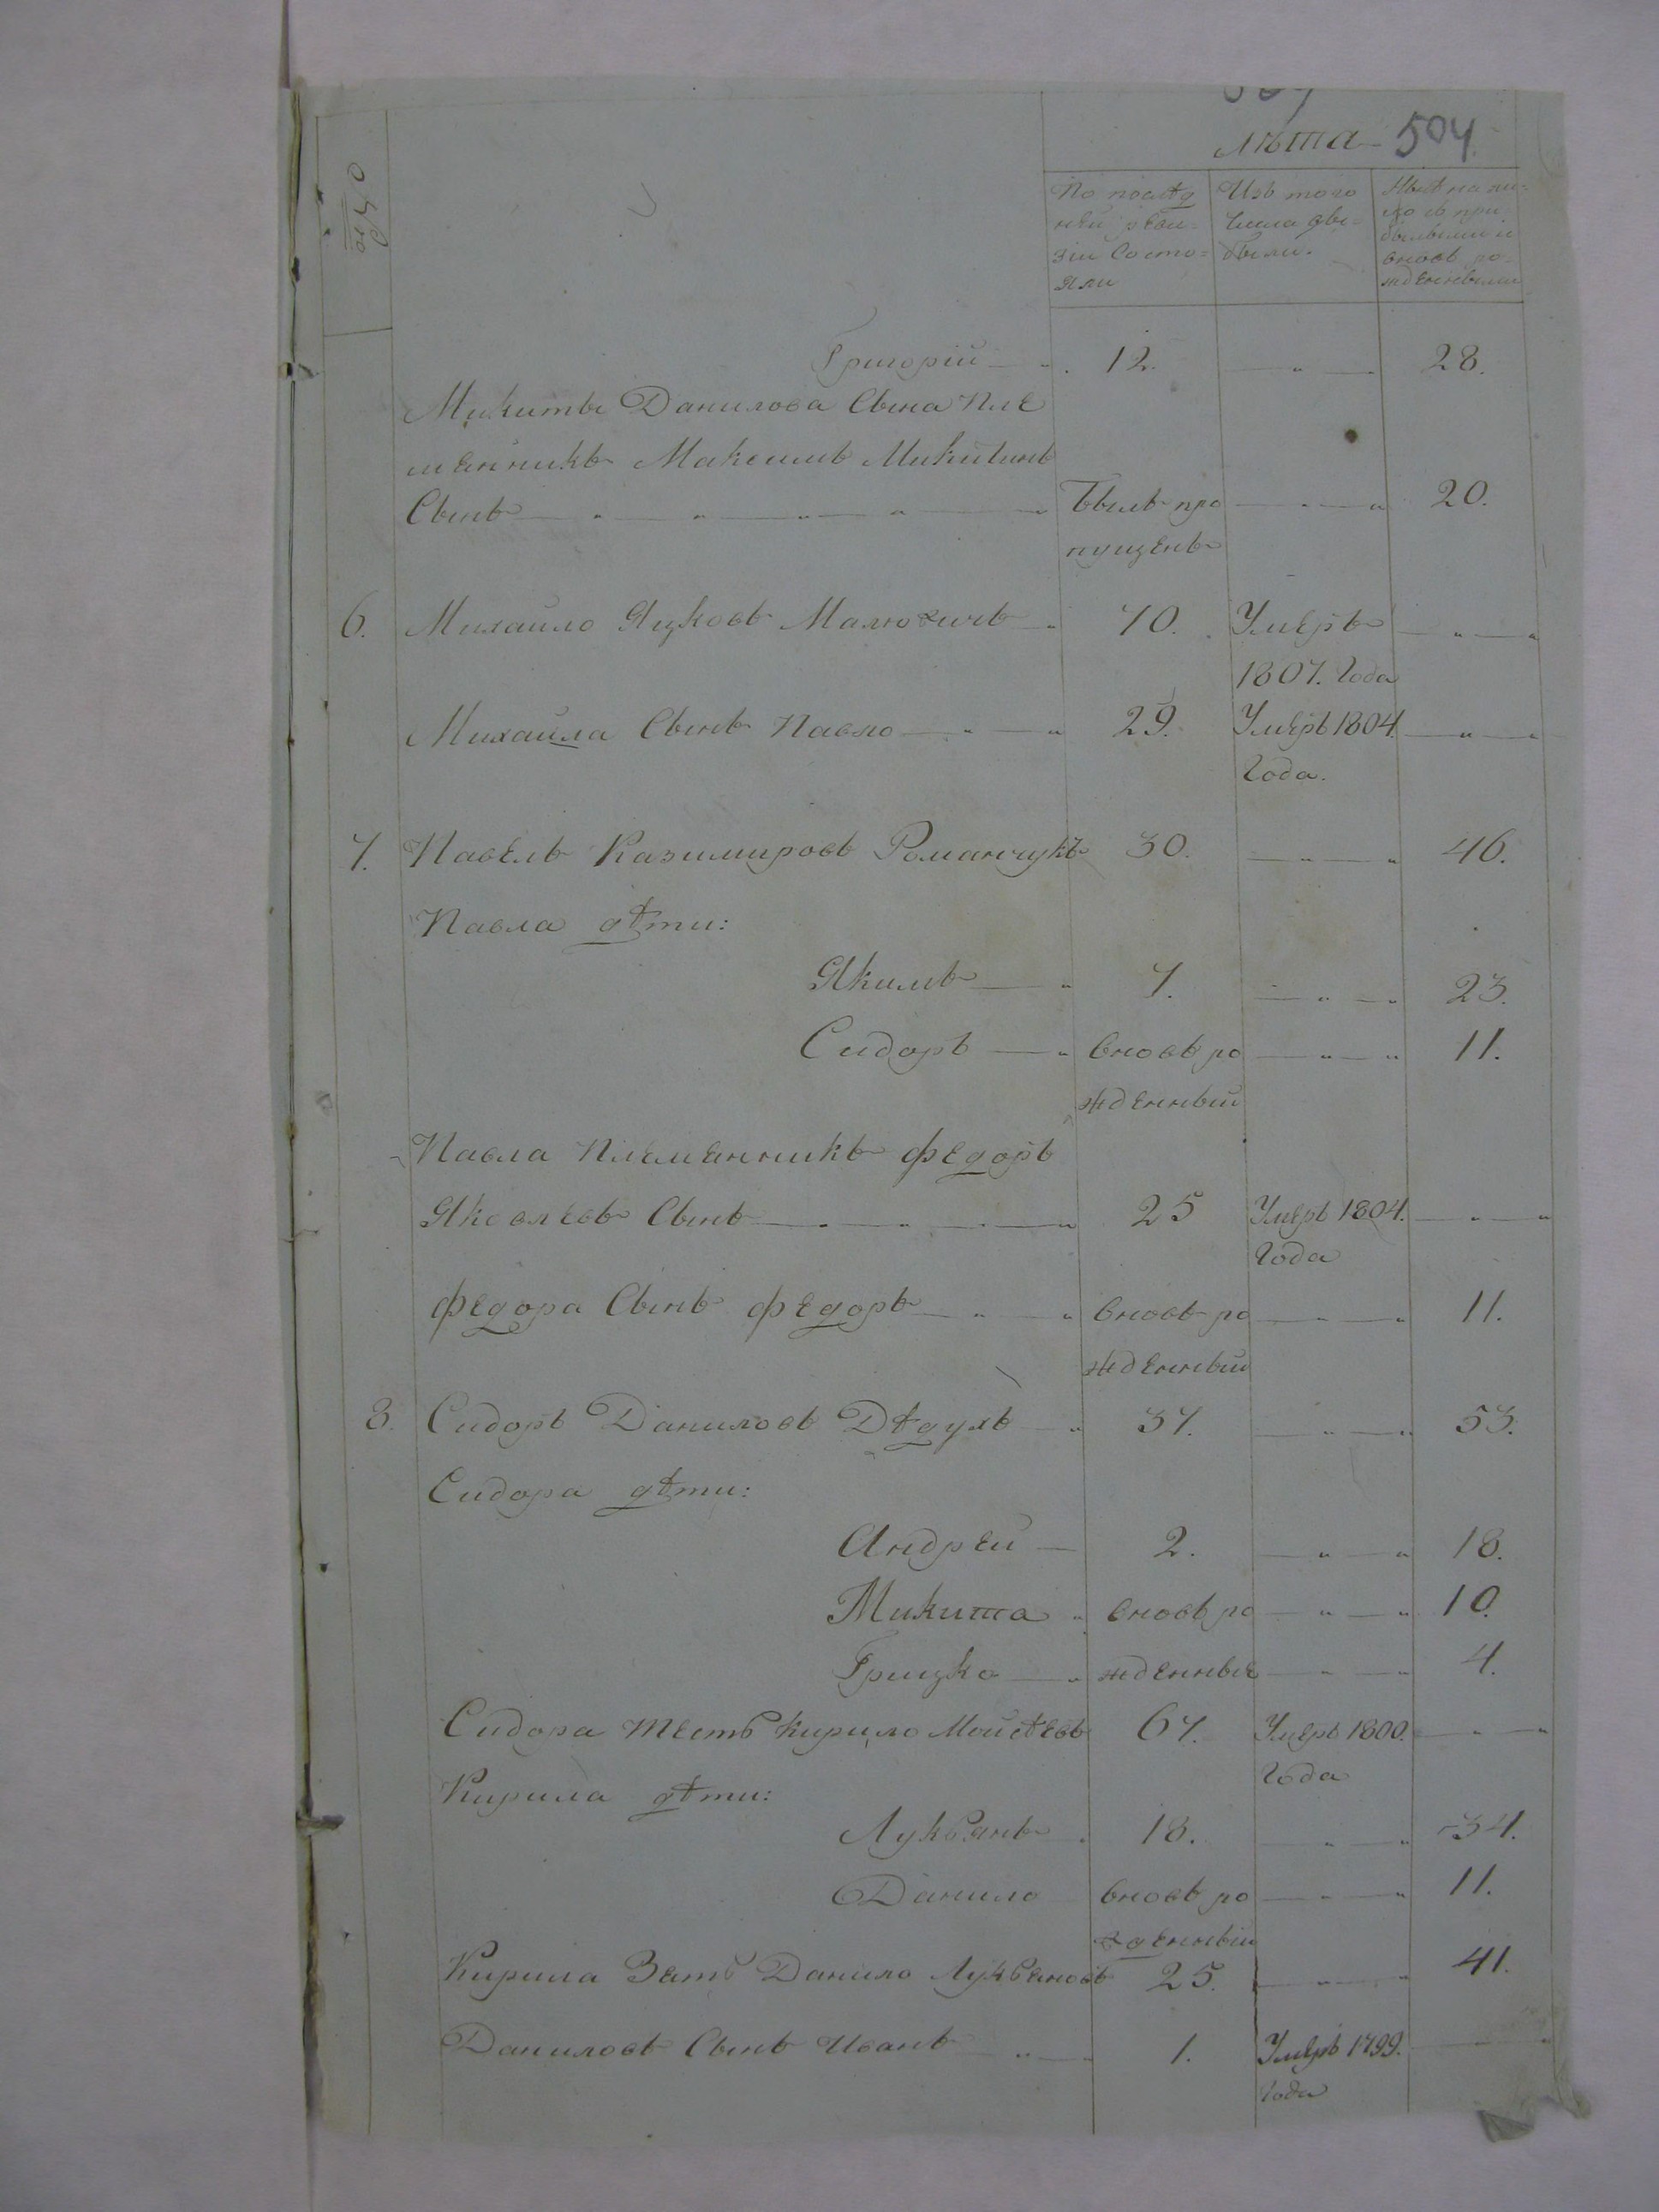 лѣта 504
По послѣд Изъ того Нынѣ на ли-
ней реви- числа вы- цо съ при
зіи состо- были. былыми и
яли вновь ро-
жденными
Григорій 12. 28.
Микиты Данилова Сына пле
мянникъ Максимъ Микитинъ
Сынъ Былъ про 20.
пущенъ
6. Михайло Яцковъ 70. Умеръ
1807. Года
Михайла Сынъ Павло 29. Умеръ 1804.
Года.
7. Павелъ Казимировъ Романчукъ 30. 46.
Павла дѣти:
Якимъ 7. 23.
Сидоръ вновь ро 11.
жденный
Павла племянникъ федоръ
Яковлевъ Сынъ 25 Умеръ 1804.
Года
федора Сынъ федоръ вновь ро 11.
жденный
8. Сидоръ Даниловъ Дѣдухъ 37. 53.
Сидора дѣти:
Андрей 2. 18.
Микита вновь ро 10.
Грицко жденные 4.
Сидора тесть Кирило Мойсѣевъ 67. Умеръ 1800.
Года
Кирила дѣти:
Лукьянъ 18. 34.
Данило вновь ро 11.
жденный
Кирила Зять Данило Лукьяновъ 25. 41.
Даниловъ Сынъ Иванъ 1. Умеръ 1799.
Года